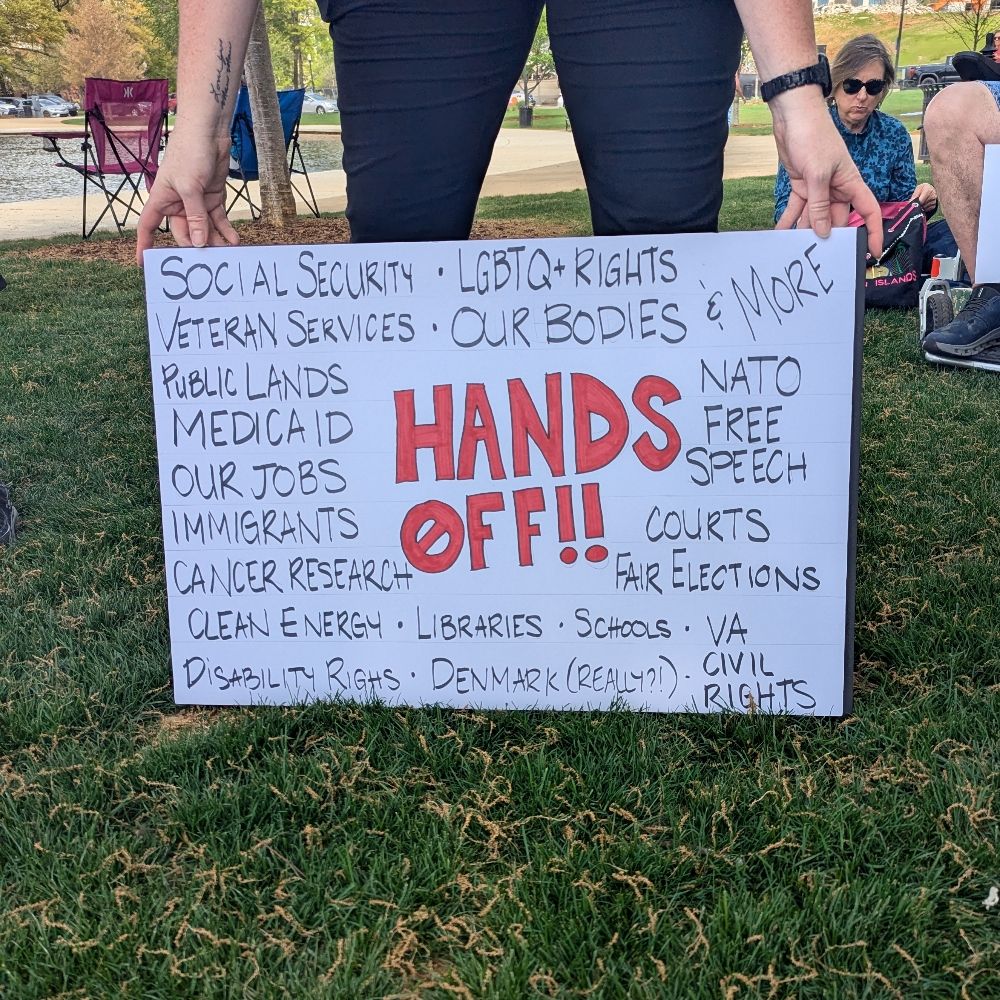 SOCIAL SECURITY · LGBTQ+ RIGHTS
& MORE
VETERAN SERVICES · OUR BODIES
PUBLIC LANDS
MEDICAID
OUR JOBS
IMMIGRANTS
CANCER RESEARCH
HANDS
OFF!!
NATO
FREE
SPEECH
COURTS
FAIR ELECTIONS
CLEAN ENERGY · LIBRARIES · SCHOOLS · VA
DISABILITY RIGHS · DENMARK (REALLY?!) · CIVIL
RIGHTS
ISLANDS